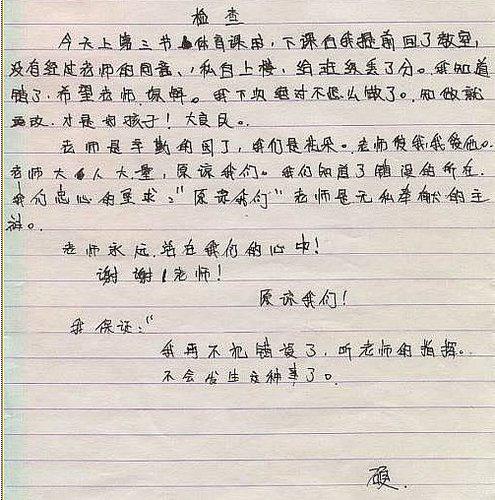 检 查
今天上第三节体育课时,下课后我提前回了教室,
没有经过老师的同意、私自上楼,给班级丢了分。我知道
错了.希望老师原谅。我下次绝对不这么做了。知做就
要改.才是好孩子!大良民。
老师是辛勤的园丁,我们是花朵。老师爱我,我爱他。
老师大人大量,原谅我们。我们知道了错误的所在.
我们忠心的要求:“原谅我们”老师是无私奉献的主
。
老师永远总在我们的心中!
谢谢!老师!
原谅我们!
我保证:“
我再不犯错误了.听老师的指挥。
不会发生这种事了。